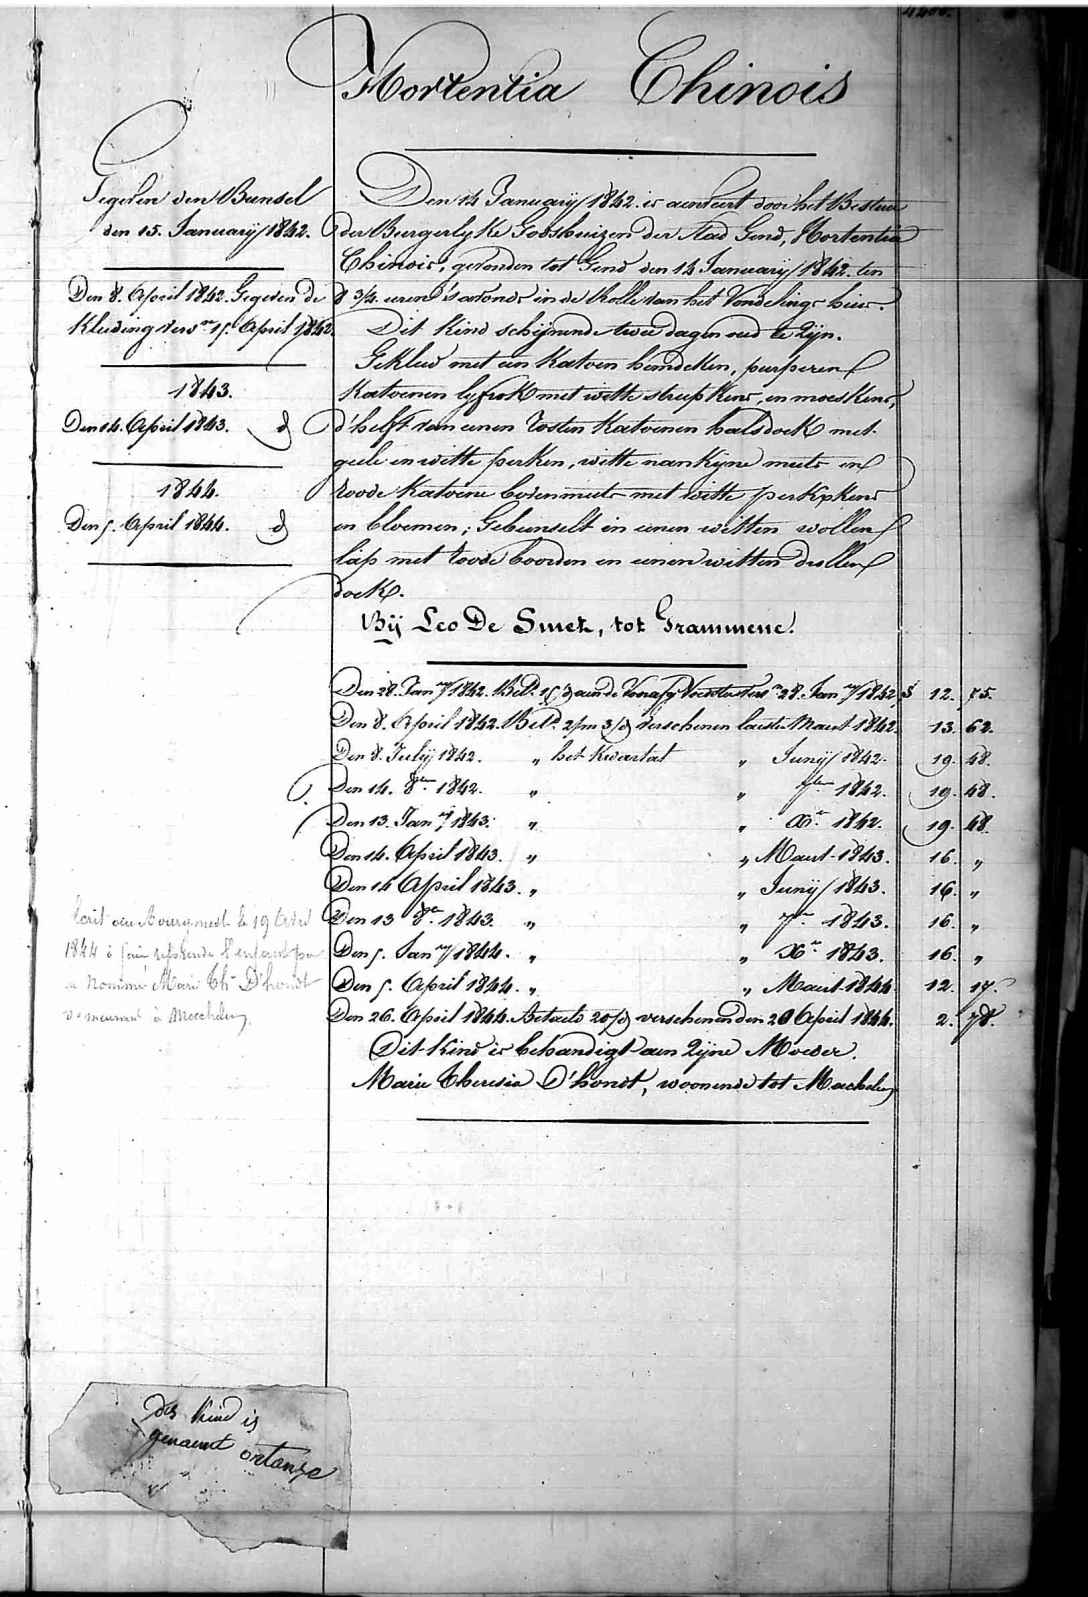 Hortentia Chinois
Gegeven den Bunsel
den 15. January 1842.
Den 8. April 1842. Gegeven de
Kleeding vers. 15. April 1842.
1843.
Den 14. April 1843. d
1844.
Den 5. April 1844. d
Den 14 January 1842. is aenveert door het Bestuer
der Burgerlyke Godshuizen der stad Gend, Hortentia
Chinois, gevonden tot Gend den 14 January 1842. ten
8 3/4. uren 's avonds in de Rolle van het Vondelings huis.
Dit Kind schijnende twee dagen oud te zijn.
Gekleed met een Katoen hemdeken, purperen
Katoenen lyfrok met witte streepkens, en moeskens,
d'helft van eenen rosten Katoenen halsdoek met
geele en witte perken, witte nankyne muts en
roode Katoene bovenmuts met witte perkskens
en bloemen; Gebunselt in eenen witten wollen
lap met roode boorden en eenen witten drollen
doek.
Bij Leo De Smet, tot Grammene.
Den 28. Jan.ry 1842. Bet.d 15 d aen de Voedster 28. Jan.ry 1842 12. 75.
Den 8. April 1842. Bet.d 2/m 3/d verschenen laeste Maert 1842. 13. 62.
Den 8. July 1842. „ het Kwartal „ Juny 1842. 19. 48.
Den 14. 8.bre 1842. „ „ 7.bre 1842. 19. 48.
Den 13. Jan.ry 1843. „ „ X.re 1842. 19. 48.
Den 14. April 1843. „ „ Maert 1843. 16. „
Den 14 April 1843. „ „ Juny 1843. 16. „
Den 13 8.re 1843. „ „ 7.re 1843. 16. „
Den 5. Jan.ry 1844. „ „ X.re 1843. 16. „
Den 5. April 1844. „ „ Maert 1844 12. 17.
Den 26. April 1844. Betaelt 20/d verschenen den 20 April 1844. 2. 78.
Dit Kind is behandigt aen zijne Moeder.
Marie Theresia D'hondt, woonende tot Machelen
Ecrit au Bourgmest. le 19 Avril
1844 à faire reprendre l'enfant par
la nommé Marie Th. D'hondt
demeurant à Maechelen
des kind is
genaemt ortanse